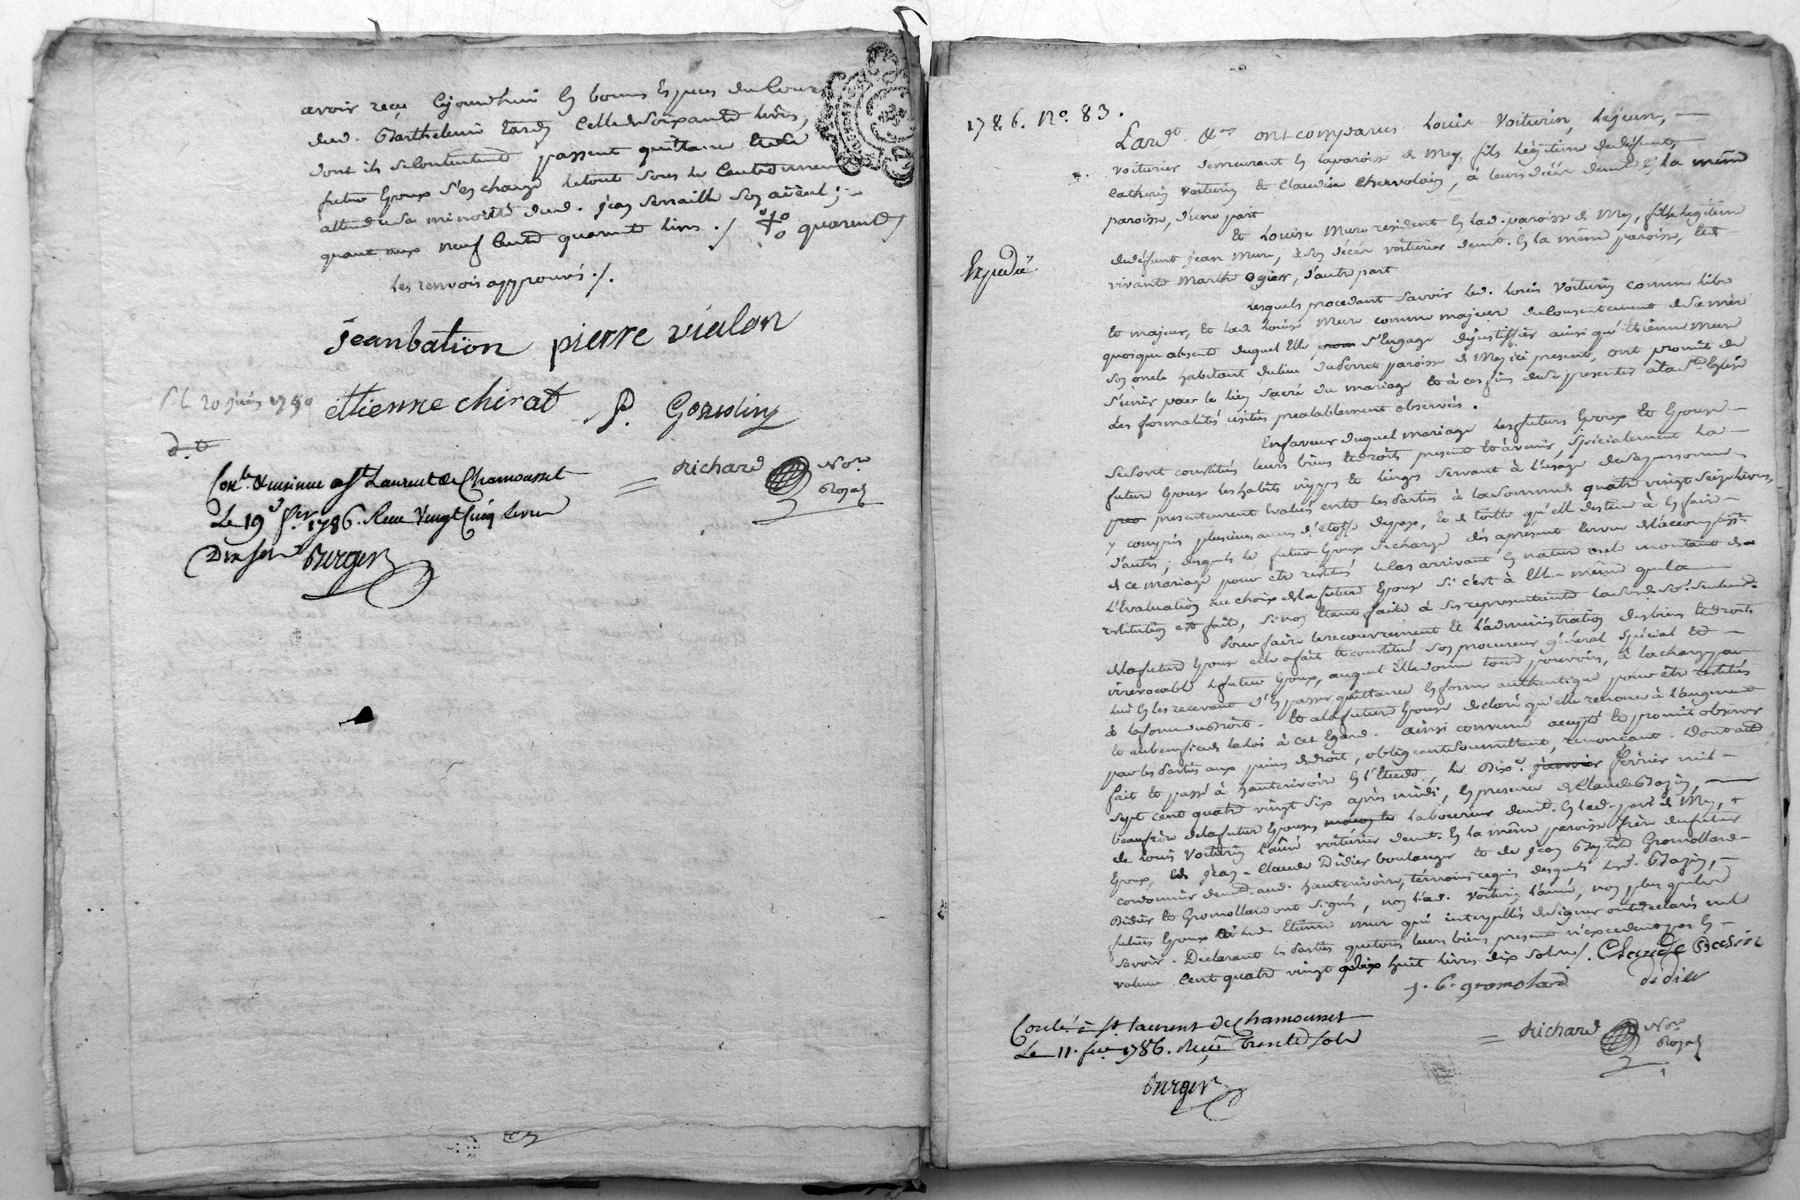 avoir reçu cejourdhui en bonnes Especes du Cours
dud. Barthelemi tardy Celle de soixante livres,
dont ils se Contentent passent quittance et le d.
futur Epoux s'en charge le tout sous le Cautionnement
attendu sa minorité dud. jean Serraille son aïeul;
quant aux neuf Cents quarante livres ./. quarante /
les renvois approuvés ./.
jeanbation pierre vialon
20 juin 1790
ettienne chirat P. Gonidiny
Conlé & insinué a St Laurent de Chamousset
Le 19 fer 1786. Reçu Vingt Cinq livres
Dix sols Burger
Richard Nore
Royal
1786. No. 83.
Expédié
Lan d. & ont comparus Louis Voiturin, lejeune,
voiturier demeurant en la paroisse de Mey, fils légitime de défunts
Catherin Voiturin et Claudine Chervolain, à leurs décès demt. en la même
paroisse, d'une part
Et Louise Mure resident en lad. paroisse de Mey, fille legitime
de défunt jean Mure, à son décès voiturier demt. en la même paroisse, et de
vivante Marthe ogier, d'autre part
Lesquels procedant savoir led. Louis Voiturin comme libre
et majeur, et lad. Louise Mure comme majeure du Consentement de sa mère
quoique absente duquel Elle s'Engage de justiffier ainsi qu'Etienne Mure
son oncle habitant du lieu paroisse de Mey ici present, ont promis de
s'unir par le lien sacré du mariage et à ces fins de se presenter à la Ste Eglise
les formalités usitées prealablement observées.
En faveur duquel mariage les futurs Epoux et Epouse
se sont constitués leurs biens et droits presents et à venir, spécialement la
future Epouse les habits nippes et linges servant à l'usage de sa personne
presentement évalués entre les parties à la somme de quatre vingt seize livres,
y compris plusieurs aunes d'étoffe et de toille qu'elle destine à en faire
d'autres; desquels le futur Epoux se charge dès apresent
de ce mariage pour etre restitués le cas arrivant en nature ou le montant de
l'Evaluation au choix de la future Epouse si c'est à Elle-même que la
restitution est faite, si non Etant faite à ses representants seulement.
Pour faire le recouvrement et l'administration des biens et droits
de la future Epouse elle a fait et constitué son procureur général spécial et
irrevocable le futur Epoux, auquel Elle donne tout pouvoir, à la charge par
lui en les recevant d'en passer quittance en forme authentique pour etre restitués
à la forme du droit. Et a la future Epouse declaré qu'elle renonce à l'augment
et au benefice de la loi à cet Egard. Ainsi convenu accepté et promis observer
par les parties aux peines de droit, obligeant soumettant, renonceant. Dont acte
fait et passé à hauterivoire en l'Etude, le Dixe. janvier février mil
sept cent quatre vingt six après midi, en presence de Claude Bazin,
beaufrère de la future Epouse laboureur demt. en lad. pare. de Mey,
de Louis Voiturin l'aîné voiturier demt. en la même paroisse frère du futur
Epoux, de jean-Claude Didier boulanger et de jean Baptiste Gromollard
cordonnier demt. aud. hauterivoire, témoins requis desquels led. Bazin,
Didier et Gromollard ont signés, non led. Voiturin l'aîné, non plus que les
futurs Epoux et led. Etienne Mure qui interpellés de signer ont declarés ne le
savoir. Declarant les parties que tous leurs biens presents n'excedent pas en
valeur Cent quatre vingt huit livres dix sols ./. Claude Basin
j. b. gromolard didier
Conlé à St laurent de Chamousset
Le 11. fer 1786. Reçu trente sols
Burger
Richard Nore
Royal